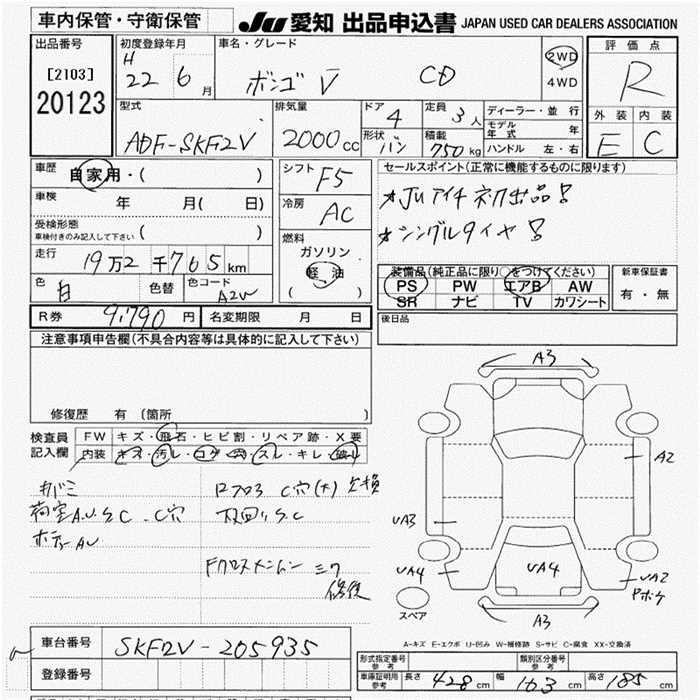 車内保管・守衛保管
JU 愛知 出品申込書 JAPAN USED CAR DEALERS ASSOCIATION
出品番号
[2103]
20123
初度登録年月
H 22 6月
車名・グレード
ボンゴ V CD
2WD
4WD
評価点
R
外装 内装
E C
型式
ADF-SKF2V
排気量
2000cc
ドア 4
形状 バン
定員 3人
積載 750kg
ディーラー・並行
モデル年式 年
ハンドル 左・右
車歴 自家用・( )
車検 年 月( 日)
受検形態
車検付きのみ記入して下さい ( )
走行 19万2千765km
色 白 色替 色コード A2V
シフト F5
冷房 AC
燃料
ガソリン
軽油
( )
セールスポイント(正常に機能するものに限ります)
*Juアイチ初出品!
*シングルタイヤ!
装備品(純正品に限り○をつけてください)
PS PW エアB AW
SR ナビ TV カワシート
新車保証書
有・無
後日品
R券 9,790円 名変期限 月 日
注意事項申告欄(不具合内容等は具体的に記入して下さい)
修復歴 有 (箇所
検査員
記入欄
FW キズ・飛石・ヒビ割・リペア跡・X要
内装 キズ・汚レ・コゲ・穴・スレ・キレ・破レ
サバミ
荷室A.U.S C.C穴
ボデーAU
ロアコア C穴(大) 欠損
下回りS.C
Fクロスメンバー ミワ
修復
A3
A2
UA3
UA4
UA4
UA2
Pボケ
A3
スペア
A-キズ E-エクボ U-凹み W-補修跡 S-サビ C-腐食 XX-交換済
車台番号 SKF2V-205935
登録番号
形式指定番号
参考
類別区分番号
参考
車庫証明用
参考
長さ 428cm 幅 163cm 高さ 185cm